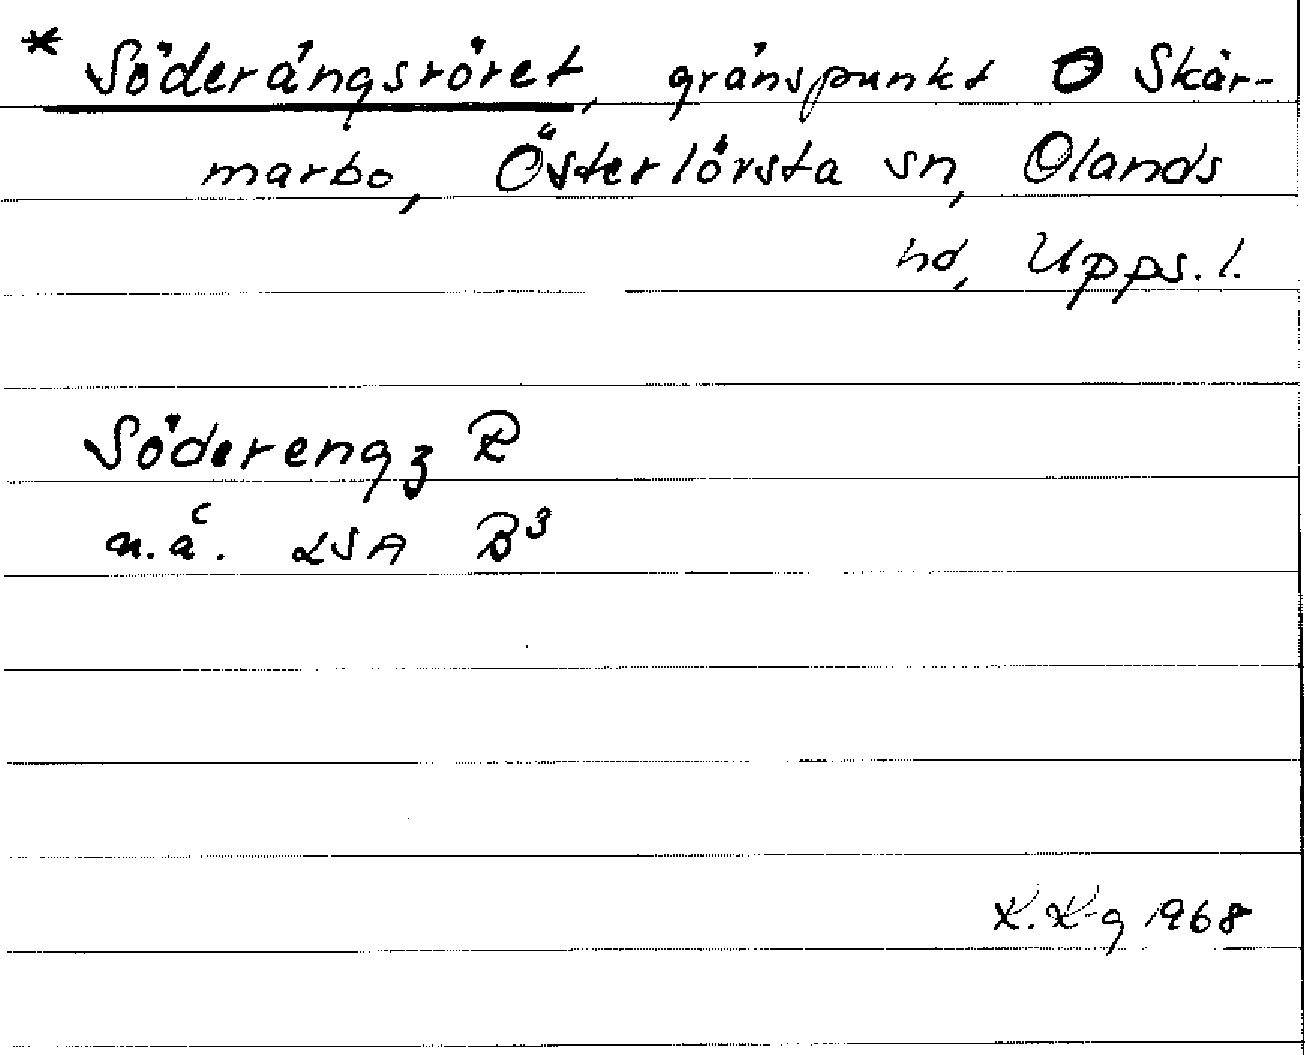 * Söderängsröret, gränspunkt O Skär-
marbo, Österlövsta sn, Olands
hd, Upps. l.
Söderengz R
n.å. LSA B3
K. K-g 1968